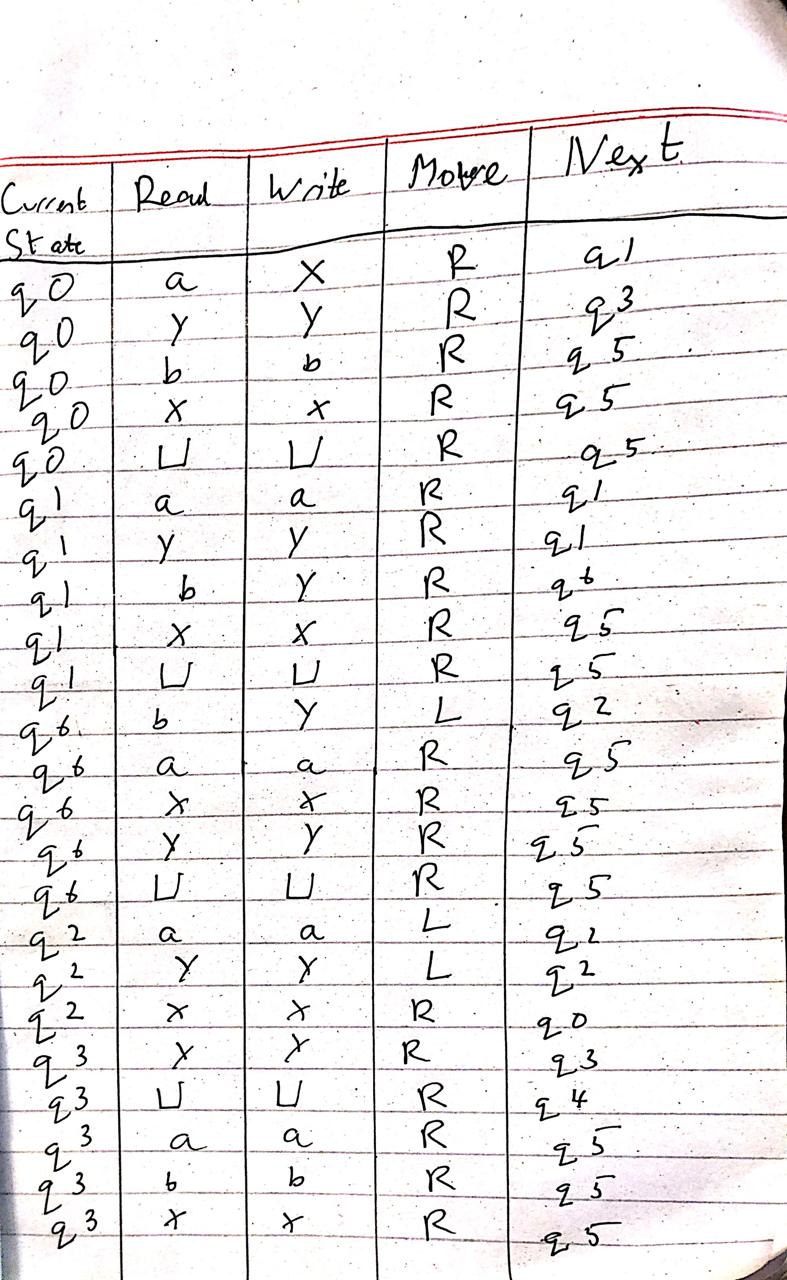 Current State Read Write Move Next
q0 a X R q1
q0 y y R q3
q0 b b R q5
q0 x x R q5
q0 ⊔ ⊔ R q5
q1 a a R q1
q1 y y R q1
q1 b y R q6
q1 x x R q5
q1 ⊔ ⊔ R q5
q6 b y L q2
q6 a a R q5
q6 x x R q5
q6 y y R q5
q6 ⊔ ⊔ R q5
q2 a a L q2
q2 y y L q2
q2 x x R q0
q3 y y R q3
q3 ⊔ ⊔ R q4
q3 a a R q5
q3 b b R q5
q3 x x R q5